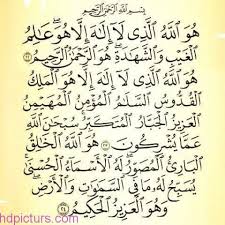 بِسْمِ اللَّهِ الرَّحْمَٰنِ الرَّحِيمِ
هُوَ اللَّهُ الَّذِي لَا إِلَٰهَ إِلَّا هُوَ عَالِمُ
الْغَيْبِ وَالشَّهَادَةِ هُوَ الرَّحْمَٰنُ الرَّحِيمُ ٢٢
هُوَ اللَّهُ الَّذِي لَا إِلَٰهَ إِلَّا هُوَ الْمَلِكُ
الْقُدُّوسُ السَّلَامُ الْمُؤْمِنُ الْمُهَيْمِنُ
الْعَزِيزُ الْجَبَّارُ الْمُتَكَبِّرُ سُبْحَانَ اللَّهِ
عَمَّا يُشْرِكُونَ ٢٣ هُوَ اللَّهُ الْخَالِقُ
الْبَارِئُ الْمُصَوِّرُ لَهُ الْأَسْمَاءُ الْحُسْنَىٰ
يُسَبِّحُ لَهُ مَا فِي السَّمَاوَاتِ وَالْأَرْضِ
وَهُوَ الْعَزِيزُ الْحَكِيمُ ٢٤
hdpicturs.com